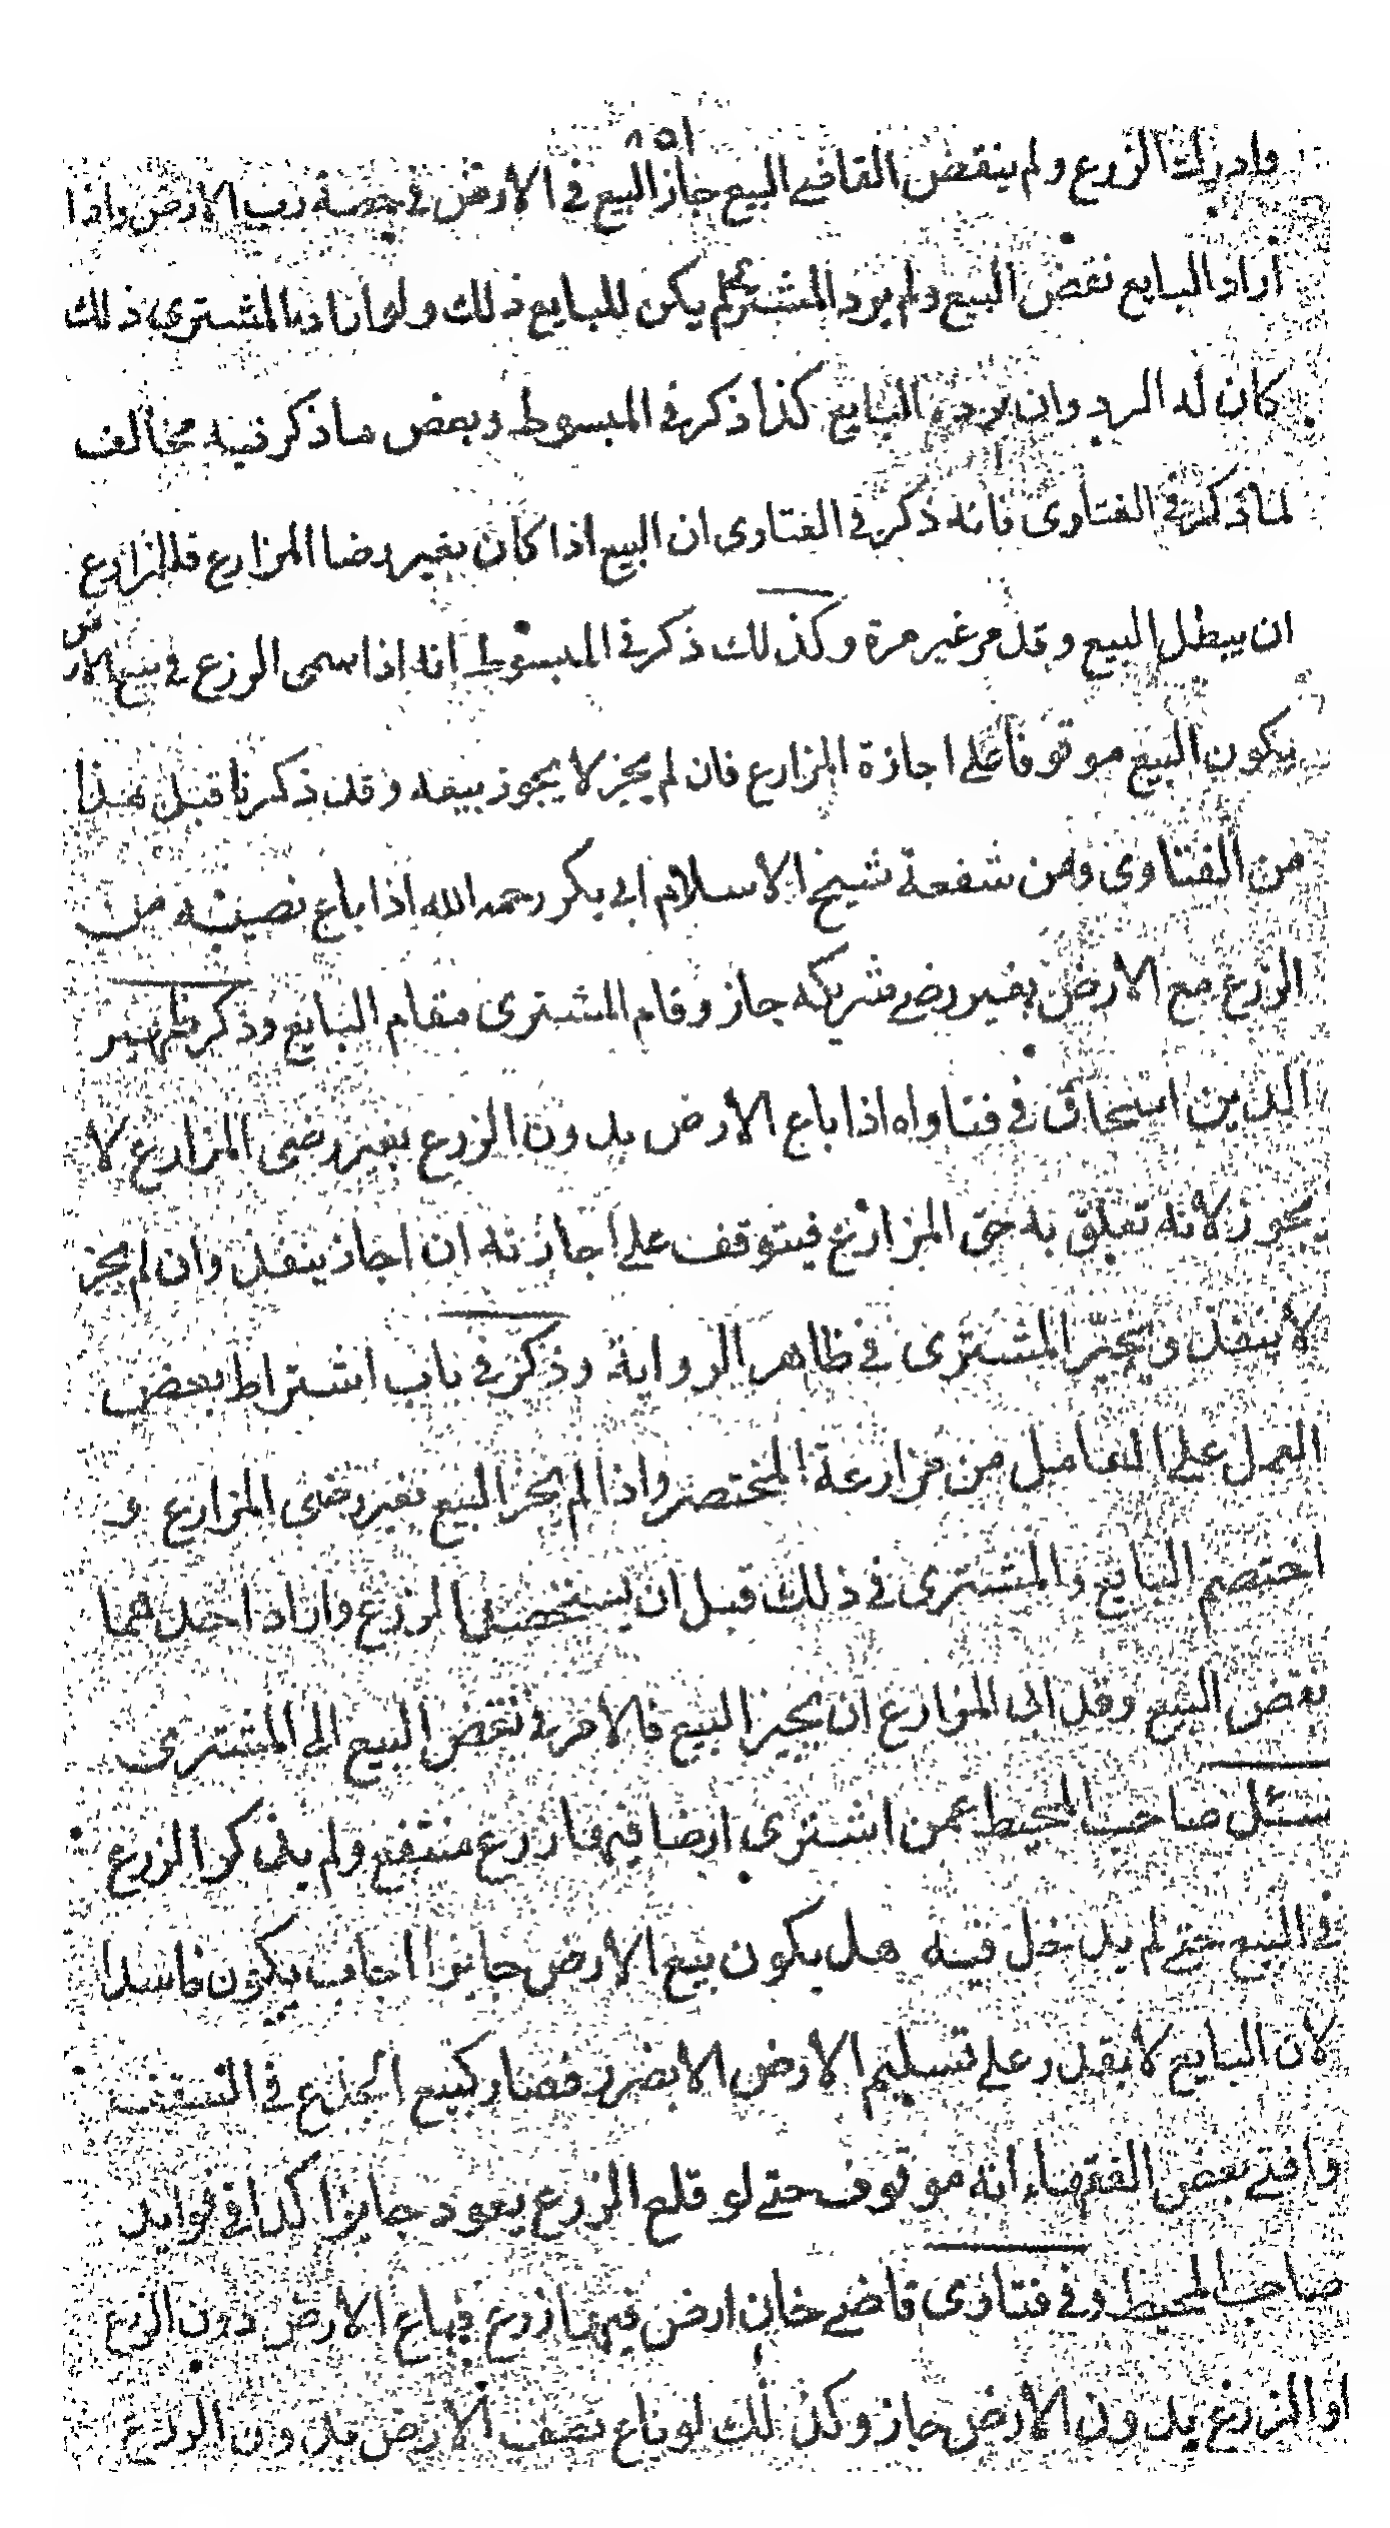 ١٥٨
وادرك الزرع ولم ينقض القاضے البيع جاز البيع في الارض في حصة رب الارض واذا
اراد البايع نقض البيع ولم يرد المشترى لم يكن للبايع ذلك ولو اراد المشترى ذلك
كان له الرد وان يرده البايع كذا ذكر في المبسوط وبعض ما ذكر فيه مخالف
لما ذكر في الفتاوى فانه ذكر في الفتاوى ان البيع اذا كان بغير رضا المزارع فللمزارع
ان يبطل البيع وقد مر غير مرة وكذلك ذكر في المبسوط انه اذا سمى الزرع في بيع الارض
يكون البيع موقوفا على اجازة المزارع فان لم يجز لا يجوز بيعه وقد ذكرنا قبل هذا
من الفتاوى ومن شفعة شيخ الاسلام ابي بكر رحمه الله اذا باع نصيبه من
الزرع مع الارض بغير رضے شريكه جاز وقام المشترى مقام البايع وذكر ظهير
الدين اسحاق في فتاواه اذا باع الارض بدون الزرع بغير رضى المزارع لا
يجوز لانه تعلق به حق المزارع فيتوقف على اجازته ان اجاز ينفذ وان لم يجز
لا ينفذ ويخير المشترى في ظاهر الرواية وذكر في باب اشتراط بعض
العمل على العامل من مزارعة المختصر واذا لم يجز البيع بغير رضى المزارع و
اختصم البايع والمشترى في ذلك قبل ان يستحصد الزرع واراد احدهما
نقض البيع وقد ابى المزارع ان يجيز البيع فالامر في نقض البيع الى المشترى
سئل صاحب المحيط عمن اشترى ارضا فيها زرع منتفع ولم يذكر الزرع
في البيع حتے لم يدخل فيه هل يكون بيع الارض جايزا اجاب يكون فاسدا
لان البايع لا يقدر على تسليم الارض الا بضرر فصار كبيع الجذع في السقف
وافتے بعض الفقهاء انه موقوف حتے لو قلع الزرع يعود جايزا كذا في فوايد
صاحب المحيط وفي فتاوى قاضے خان ارض فيها زرع فباع الارض دون الزرع
او الزرع بدون الارض جاز وكذلك لو باع نصف الارض بدون الزرع